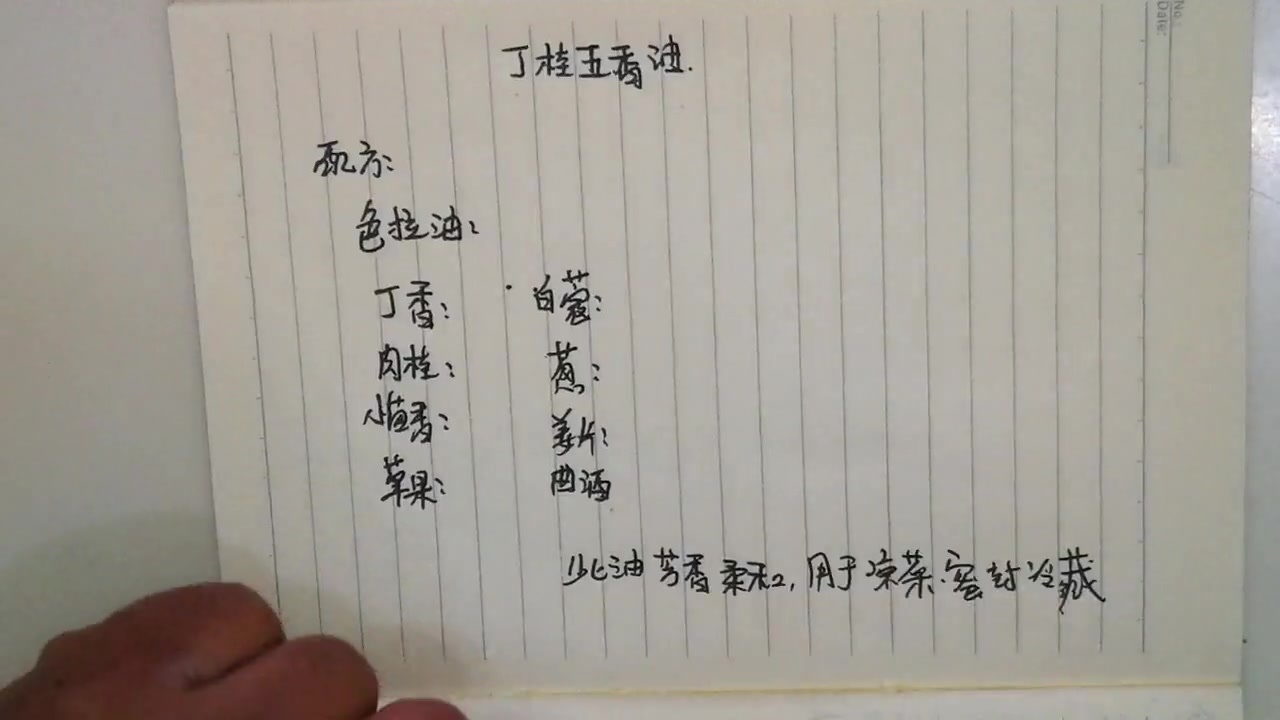 No:
Date:
丁桂五香油.
配方:
色拉油:
丁香:
肉桂:
小茴香:
草果:
白蔻:
葱:
姜片:
曲酒
此油芳香柔和,用于凉菜.密封冷藏